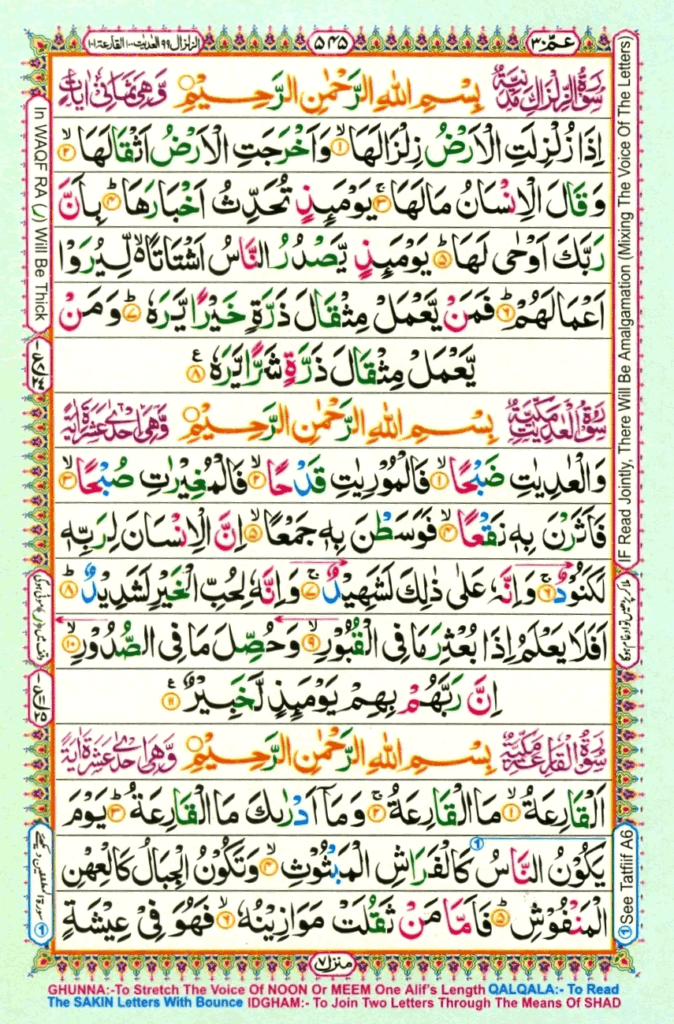 الزلزال ٩٩ العٰدیٰت ١٠٠ القارعة ١٠١
٥٤٥
عمّ ٣٠
سُوۡرَةُ الزِّلۡزَالِ مَدَنِيَّةٌ بِسۡمِ اللهِ الرَّحۡمٰنِ الرَّحِيۡمِ وَّهِىَ ثَمَانِىۡ اٰيَاتٍ
اِذَا زُلۡزِلَتِ الۡاَرۡضُ زِلۡزَالَهَا ۙ‏﴿۱﴾ وَاَخۡرَجَتِ الۡاَرۡضُ اَثۡقَالَهَا ۙ‏﴿۲﴾
وَقَالَ الۡاِنۡسَانُ مَا لَهَا‌ ۚ‏﴿۳﴾ يَوۡمَٮِٕذٍ تُحَدِّثُ اَخۡبَارَهَا ۙ‏﴿۴﴾ بِاَنَّ
رَبَّكَ اَوۡحٰى لَهَا ؕ‏﴿۵﴾ يَوۡمَٮِٕذٍ يَّصۡدُرُ النَّاسُ اَشۡتَاتًا ۙ لِّيُرَوۡا
اَعۡمَالَهُمۡؕ‏﴿۶﴾ فَمَنۡ يَّعۡمَلۡ مِثۡقَالَ ذَرَّةٍ خَيۡرًا يَّرَهٗ ؕ‏﴿۷﴾ وَمَنۡ
يَّعۡمَلۡ مِثۡقَالَ ذَرَّةٍ شَرًّا يَّرَهٗ ‏﴿۸﴾
سُوۡرَةُ الۡعٰدِيٰتِ مَكِّيَّةٌ بِسۡمِ اللهِ الرَّحۡمٰنِ الرَّحِيۡمِ وَّهِىَ اِحۡدٰى عَشۡرَةَ اٰيَةً
وَالۡعٰدِيٰتِ ضَبۡحًا ۙ‏﴿۱﴾ فَالۡمُوۡرِيٰتِ قَدۡحًا ۙ‏﴿۲﴾ فَالۡمُغِيۡرٰتِ صُبۡحًا ۙ‏﴿۳﴾
فَاَثَرۡنَ بِهٖ نَقۡعًا ۙ‏﴿۴﴾ فَوَسَطۡنَ بِهٖ جَمۡعًا ۙ‏﴿۵﴾ اِنَّ الۡاِنۡسَانَ لِرَبِّهٖ
لَـكَنُوۡدٌ ۚ‏﴿۶﴾ وَاِنَّهٗ عَلٰى ذٰلِكَ لَشَهِيۡدٌ ۚ‏﴿۷﴾ وَاِنَّهٗ لِحُبِّ الۡخَيۡرِ لَشَدِيۡدٌ ؕ‏﴿۸﴾
اَفَلَا يَعۡلَمُ اِذَا بُعۡثِرَ مَا فِى الۡقُبُوۡرِۙ‏﴿۹﴾ وَحُصِّلَ مَا فِى الصُّدُوۡرِۙ‏﴿۱۰﴾
اِنَّ رَبَّهُمۡ بِهِمۡ يَوۡمَٮِٕذٍ لَّخَبِيۡرٌ ‏﴿۱۱﴾
سُوۡرَةُ الۡقَارِعَةِ مَكِّيَّةٌ بِسۡمِ اللهِ الرَّحۡمٰنِ الرَّحِيۡمِ وَّهِىَ اِحۡدٰى عَشۡرَةَ اٰيَةً
اَلۡقَارِعَةُ ۙ‏﴿۱﴾ مَا الۡقَارِعَةُ‌ ۚ‏﴿۲﴾ وَمَاۤ اَدۡرٰٮكَ مَا الۡقَارِعَةُ ؕ‏﴿۳﴾ يَوۡمَ
يَكُوۡنُ النَّاسُ كَالۡفَرَاشِ الۡمَبۡثُوۡثِۙ‏﴿۴﴾ وَتَكُوۡنُ الۡجِبَالُ كَالۡعِهۡنِ
الۡمَنۡفُوۡشِؕ‏﴿۵﴾ فَاَمَّا مَنۡ ثَقُلَتۡ مَوَازِيۡنُهٗ ۙ‏﴿۶﴾ فَهُوَ فِىۡ عِيۡشَةٍ
منزل ٧
In WAQF RA (ر) Will Be Thick
IF Read Jointly, There Will Be Amalgamation (Mixing The Voice Of The Letters)
① See Tatfiif A6
GHUNNA:-To Stretch The Voice Of NOON Or MEEM One Alif's Length QALQALA:- To Read
The SAKIN Letters With Bounce IDGHAM:- To Join Two Letters Through The Means Of SHAD